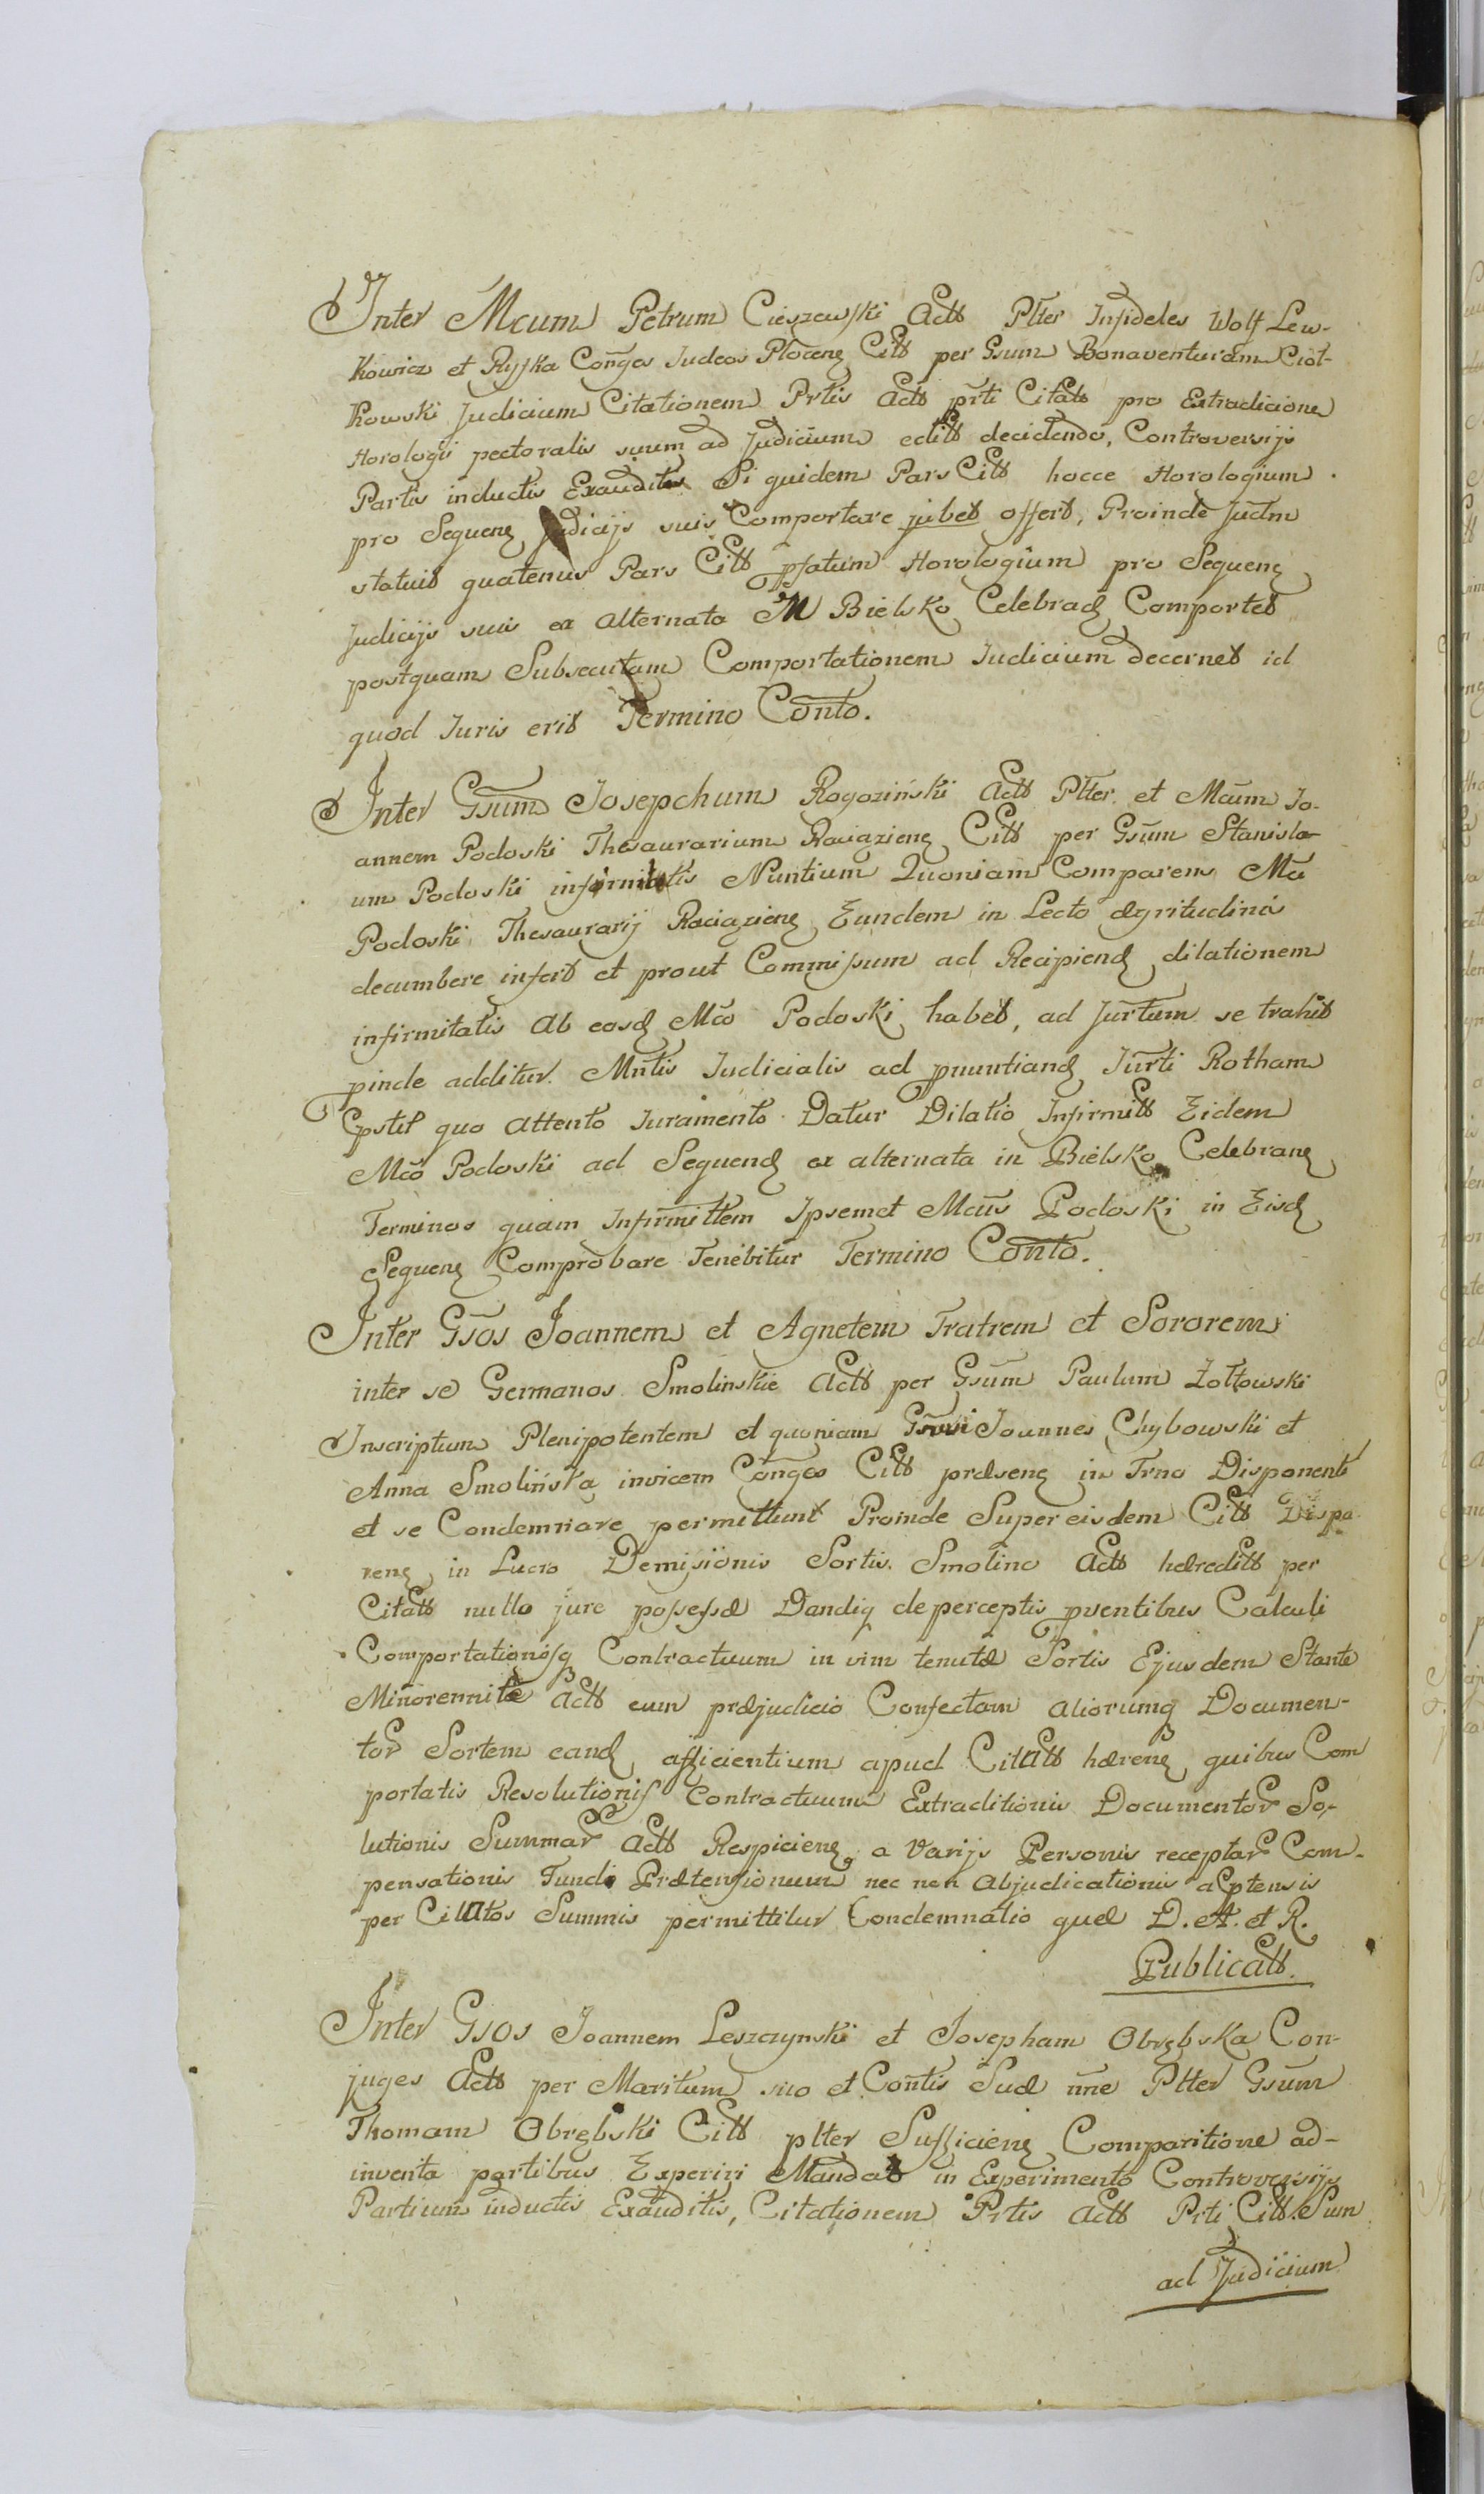 Inter Mcum Petrum Cieszewski Actt Plter Infideles Wolf Lew-
kowicz et Ryfka Conges Judeos Plocenʒ Citt per Gsum Bonaventuram Ciot-
kowski Judicium Citationem Prtis Actt prti Citatt pro Extradicione
Horologii pectoralis suum ad Judicium editt decidendo, Controversijs
Partis inductis Exauditis Si quidem Pars Citt hocce Horologium
pro Sequenʒ Judicijs suis Comportare jubet offert, Proinde Judm
statuit quatenus Pars Citt pfatum Horologium pro Sequenʒ
Judicijs suis ex alternata in Bielsko Celebradʒ Comportet
postquam Subsecutam Comportationem Judicium decernet id
quod Juris erit Termino Conto.
Inter Gsum Josepchum Rogoziński Actt Plter et Mcum Jo-
annem Podoski Thesaurarium Raciązienʒ Citt per Gsum Stanisla-
um Podoski infirmitatis Nuntium Quoniam Comparens Mci
Podoski Thesaurarij Raciązienʒ Eundem in Lecto ægritudinis
decumbere infert et prout Commissum ad Recipiendʒ dilationem
infirmitatis ab eodʒ Mco Podoski habet, ad Jurtum se trahit
pinde additur Mntis Judicialis ad pnuntiandʒ Jurti Rotham
quo attento Juramento Datur Dilatio Infirmitt Eidem
Mco Podoski ad Sequendʒ ex alternata in Bielsko Celebranʒ
Terminos quam Infirmittem Ipsemet Mcus Podoski in Eisdʒ
Sequenʒ Comprobare Tenebitur Termino Conto.
Inter Gsos Joannem et Agnetem Fratrem et Sororem
inter se Germanos Smolinskie Actt per Gsum Paulum Żołtowski
Inscriptum Plenipotentem et quoniam Gsi Joannes Chybowski et
Anna Smolińska invicem Conges Citt præsenʒ in Trno Disponenti
et se Condemnare permittunt Proinde Super eisdem Citt Dispa
renʒ in Lucro Demissionis Sortis Smolino Actt hæreditt per
Citatt nullo jure possessæ Dandiq de perceptis pventibus Calculi
Comportationisq Contractuum in vim tenutæ Sortis Ejusdem Stante
Minorennitte Actt cum præjudicio Confectam aliorumq Documen-
tor Sortem eandʒ afficientium apud Citatt hærenʒ quibus Com
portatis Resolutionis Contractuum Extraditionis Documentor So-
lutionis Summar Actt Respicienʒ a Varijs Personis receptar Com-
pensationis Fundi Prætensionum nec non Abjudicationis aCptensis
per Citatos Summis permittitur Condemnatio quæ D. A. et R.
Publicatt.
Inter Gsos Joannem Leszczynski et Josepham Obrębska Con-
juges Actt per Maritum suo et Contis Suæ nne Plter Gsum
Thomam Obrębski Citt plter Sufficienʒ Comparitione ad-
inventa partibus Experiri Mandat in Experimento Controversijs
Partium inductis Exauditis, Citationem Prtis Actt Prti Citt Sum
ad Judicium